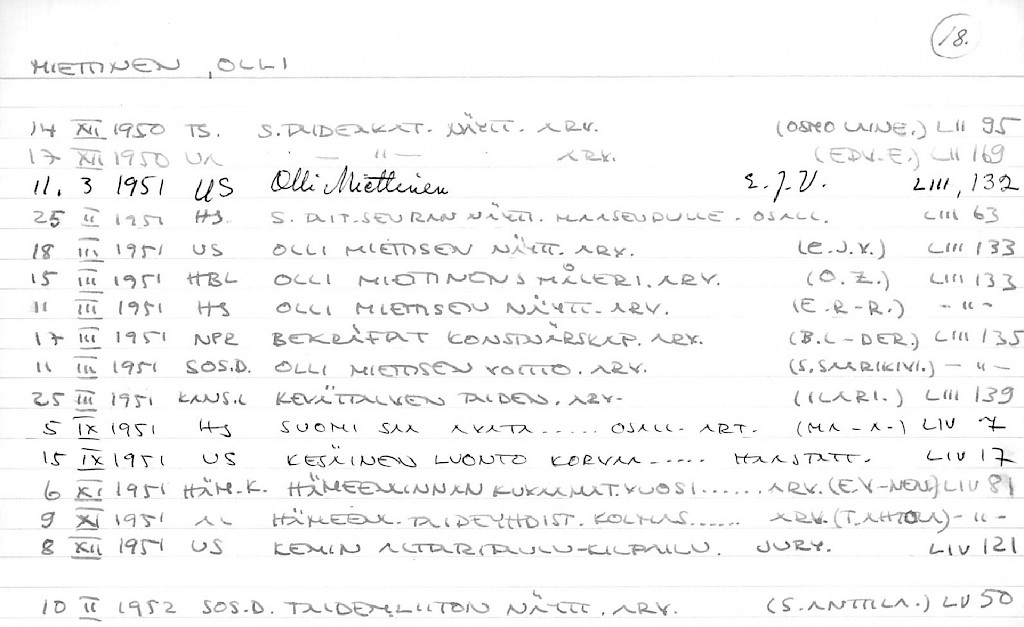 18.
MIETTINEN, OLLI
14 XII 1950 TS. S. TAIDEAKAT. NÄYTT. ARV. (OSMO LAINE.) LII 95
17 XII 1950 UA — " — ARV. (EDV. E.) LII 169
11. 3 1951 US Olli Miettinen E. J. V. LIII, 132
25 II 1951 HS. S. TAIT. SEURAN NÄYTT. MAASEUDULLE. OSALL. LIII 63
18 III 1951 US OLLI MIETTISEN NÄYTT. ARV. (E.J.V.) LIII 133
15 III 1951 HBL OLLI MIETTINENS MÅLERI. ARV. (O.Z.) LIII 133
11 III 1951 HS OLLI MIETTISEN NÄYTT. ARV. (E.R-R.) - " -
17 III 1951 NPR BEKRÄFTAT KONSTNÄRSKAP. ARV. (B.L-DER.) LIII 135
11 III 1951 SOS.D. OLLI MIETTISEN VOITTO. ARV. (S. SAARIKIVI.) — " —
25 III 1951 KANS.L KEVÄTTALVEN TAIDEN. ARV. (ILARI.) LIII 139
5 IX 1951 HS SUOMI SAA AVATA ..... OSALL. ART. (MA-A-) LIV 7
15 IX 1951 US KESÄINEN LUONTO KORVAA ..... HAASTATT. LIV 17
6 XI 1951 HÄM.K. HÄMEENLINNAN KUVAAMAT. VUOSI ...... ARV. (E.V-NEN) LIV 81
9 XI 1951 AL HÄMEENL. TAIDEYHDIST. KOLMAS ...... ARV. (T. AHTOLA) - " -
8 XII 1951 US KEMIN ALTTARITAULU-KILPAILU. JURY. LIV 121
10 II 1952 SOS.D. TAIDEMLIITON NÄYTT. ARV. (S. ANTTILA.) LV 50